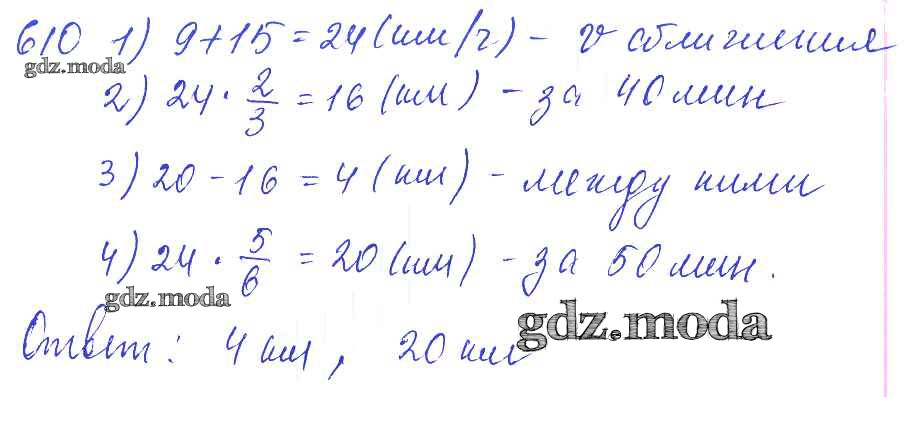 610 1) 9+15=24(км/ч) - v сближения
gdz.moda
2) 24 · 2/3 = 16 (км) - за 40 мин
3) 20 - 16 = 4 (км) - между ними
4) 24 · 5/6 = 20 (км) - за 50 мин.
gdz.moda
gdz.moda
Ответ: 4 км, 20 км